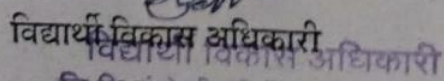 विद्यार्थी विकास अधिकारी
विद्यार्थी विकास अधिकारी